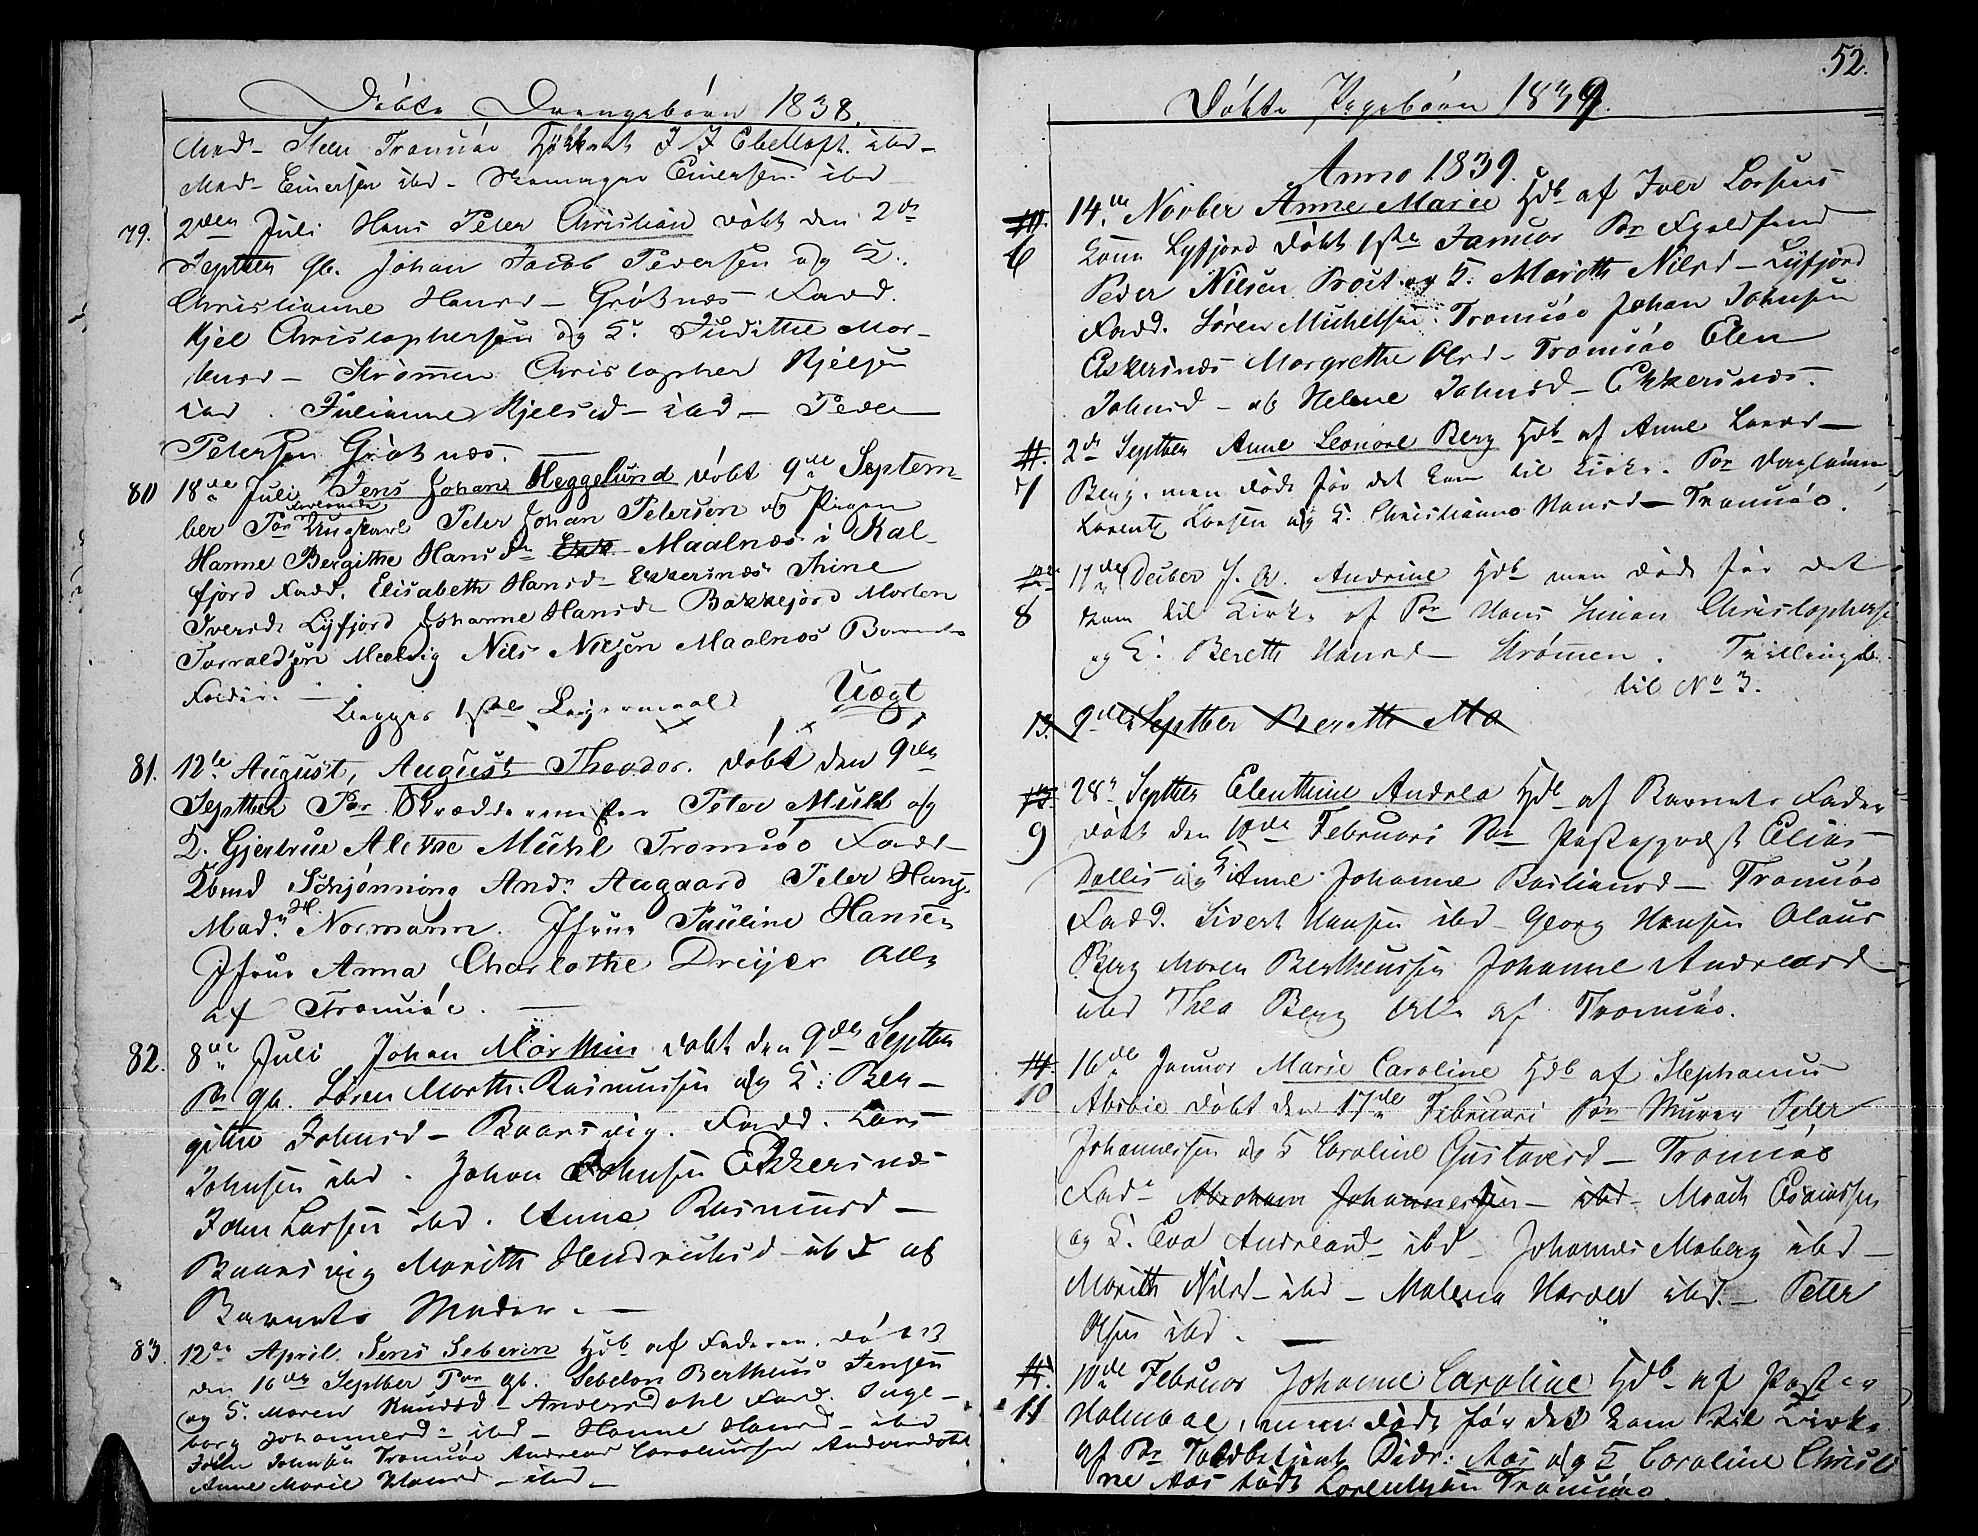 Døbte Drengebørn 1838.
Mad- Steen Tromsøe J J Ebeltoft ibd-
Mad- Einersen ibd- Skomager Einersen ibd
79. 2den Juli Hans Peter Christian døbt den 2de
Septber Gb. Johan Jacob Pedersen og K.
Christianne Hansd- Grötnæs Fadd.
Kjel Christophersen og K. Judithe Mor-
tensd- Strømmen Christopher Kjelsen
ibd. Julianne Kjelsd- ibd- Peder
Petersen Grötnæs.
80 18de Juli Jens Johan Heggelund døbt 9de Septem-
ber For Ungkarl Peter Johan Petersen og Pigen
Hanne Bergithe Hansdr Maalnæs i Kal-
fjord Fadd. Elisabeth Hansd- Ekkersnæs Thine
Iversdr Lyfjord Johanne Hansdr Bakkejord Morten
Torvaldsen Meelvig Nils Nilsen Maalnæs Barnets
Fader.
Begges 1ste Leiermaal Uægt
81. 12te August, August Theodor. døbt den 9de
Septber For Skræddermester Peter Mühl og
K. Gjertrue Alethe Mühl Tromsøe Fadd-
Kbmd Schjønning Andr Aagaard Peter Hansen
Madm Normann. Jfrue Pauline Hansen
Jfrue Anna Charlothe Dreyer Alle
af Tromsøe.
82. 8de Juli Johan Mörthin døbt den 9de Septber
For gb. Sören Morth. Rasmussen og K: Ber-
githe Johnsd- Baarsvig. Fadd. Lars
Johnsen ibd. Johan Johnsen Ekkersnæs
John Larsen ibd. Anne Rasmusd-
Baarsvig Marith Hendrichsd- ibd og
Barnets Moder.
83. 12te April Jens Seberin Hdb af Faderen. døbt
den 16de Septber For gb. Sebelon Bertheus Jensen
og K. Maren Knudsd- Andersdahl Fadd. Inge-
borg Johannesd- ibd- Hanne Hansd- ibd
John Johnsen Tromsøe Andreas Andersdahl
Anne Marie Hansd- ibd-
52.
Døbte Pigebørn 1839.
Anno 1839.
6 14de Novber Anne Marie Hdb af Iver Larsens
Kone Lyfjord døbt 1ste Januar For
Peder Nilsen Proit og K. Marith Nilsd- Lyfjord
Fadd. Sören Michelsen Tromsöe Johan Johnsen
Ekkersnæs Margrethe Olsd- Tromsöe Elen
Johnsd- og Helene Johnsd- Ekkersnæs.
7 2de Septber Anne Leonore Berg Hdb af Anne Larsd-
Berg, men døde før det kom til Kirke. For Dagleier
Lorentz Larsen og K. Christianne Hansd- Tromsöe.
8 17de Decber f. A. Andrine Hdb men døde før det
kom til Kirke af For Hans Simon Christophersen
og K. Bereth Hansd- Strømmen. Trillingb.
til No 3.
13. 9de Septber Bereth Ma
9 28de Septber Elenthine Andrea Hdb af Barnets Fader
døbt den 10de Februari For Elias
Dallis og K Anne Johanne Bastiansd- Tromsöe
Fadd. Sivert Hansen ibd- Georg Hansen Olaus
Berg Maren Bertheussen Johanne Andreasd-
ibd Thea Berg Alle af Tromsöe.
10 16de Januar Marie Caroline Hdb af Stephanus
døbt den 17de Februari For Murer Peter
Johannessen og K Caroline Gustavesd- Tromsöe
Fadd Abraham Johannessen- ibd- Esaiassen
og K. Eva Andreasd- ibd- Johannes Moberg ibd-
Marith Nilsd- ibd- Malena ibd- Peter
Olsen ibd.
11 10de Februar Johanne Caroline Hdb af Pastor
Holmboe, men døde før det kom til Kirke
af For Toldbetjent Didr: Aas og K Caroline Christi
ne Aas födt Lorentzen Tromsöe.